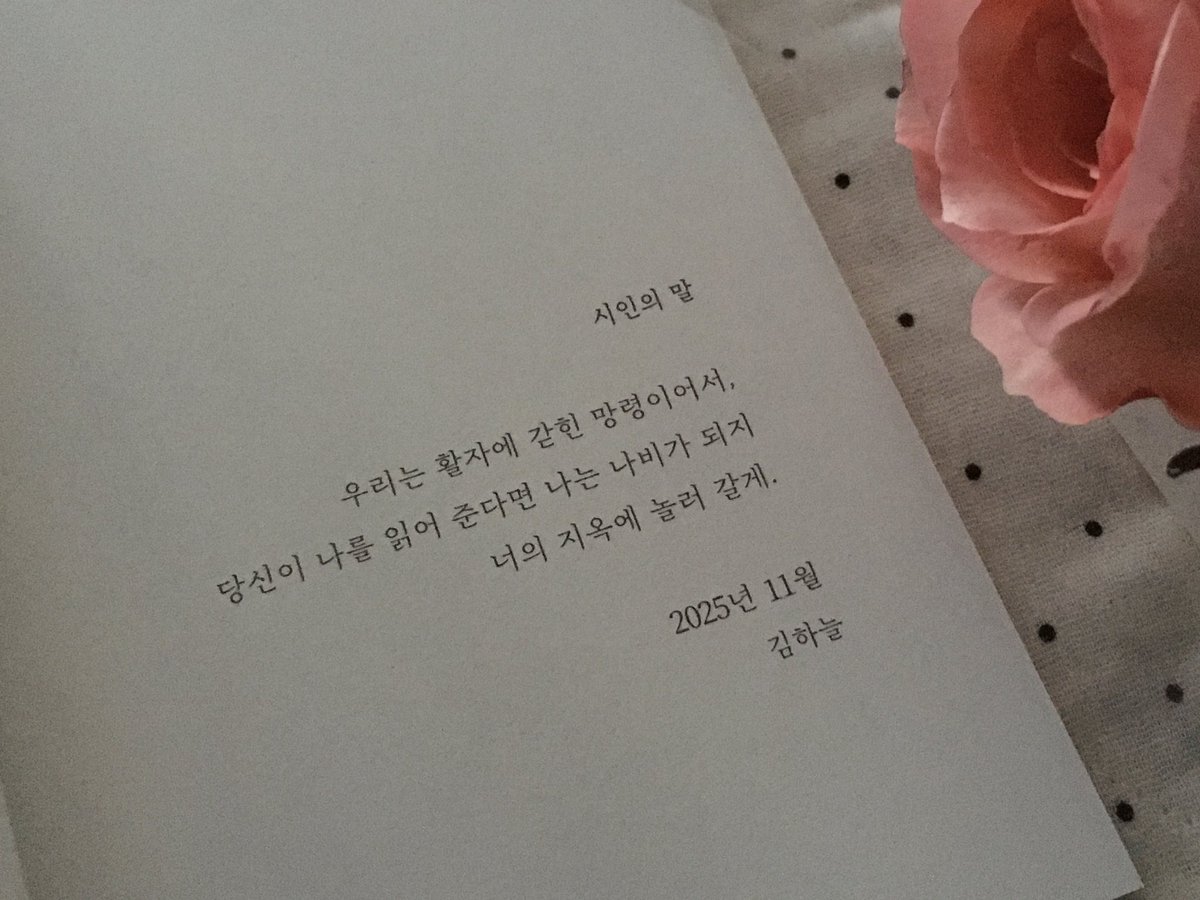 시인의 말
우리는 활자에 갇힌 망령이어서,
당신이 나를 읽어 준다면 나는 나비가 되지
너의 지옥에 놀러 갈게.
2025년 11월
김하늘